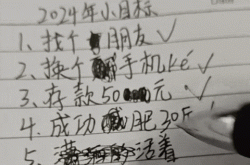 2024年小目标
1、找个朋友✓
2、换个手机ké✓
3、存款50元✓
4、成功减肥20斤
5、活着